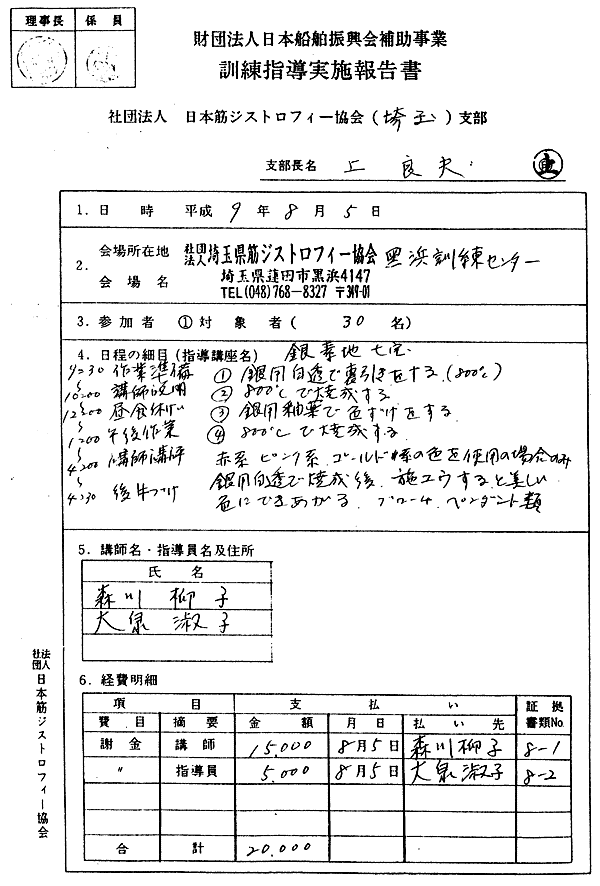 理事長 係員
財団法人日本船舶振興会補助事業
訓練指導実施報告書
社団法人 日本筋ジストロフィー協会(埼玉)支部
支部長名 上 良夫
1. 日 時 平成 9 年 8 月 5 日
2. 会場所在地 会場名
社団法人 埼玉県筋ジストロフィー協会 黒浜訓練センター
埼玉県蓮田市黒浜4147
TEL(048)768-8327 〒349-01
3. 参加者 ①対象者( 30 名)
4. 日程の細目(指導講座名) 銀素地七宝
9:30 作業準備 ① 銀用白透で裏引きをする(800℃)
10:00 講師説明 ② 800℃で焼成する
12:00 昼食休けい ③ 銀用釉薬で色ずけをする
1:00 午後作業 ④ 800℃で焼成する
4:00 講師講評 赤系 ピンク系 ゴールド系の色を使用の場合のみ
4:30 後片づけ 銀用白透で焼成後、施エウすると美しい
色にできあがる。ブローチ、ペンダント類
5. 講師名・指導員名及住所
氏 名
森川 柳子
大泉 淑子
6. 経費明細
項 目 支 払 い 証拠書類No.
費目 摘要 金額 月日 払い先
謝金 講師 15,000 8月5日 森川柳子 8-1
〃 指導員 5,000 8月5日 大泉淑子 8-2
合 計 20,000
社団法人 日本筋ジストロフィー協会